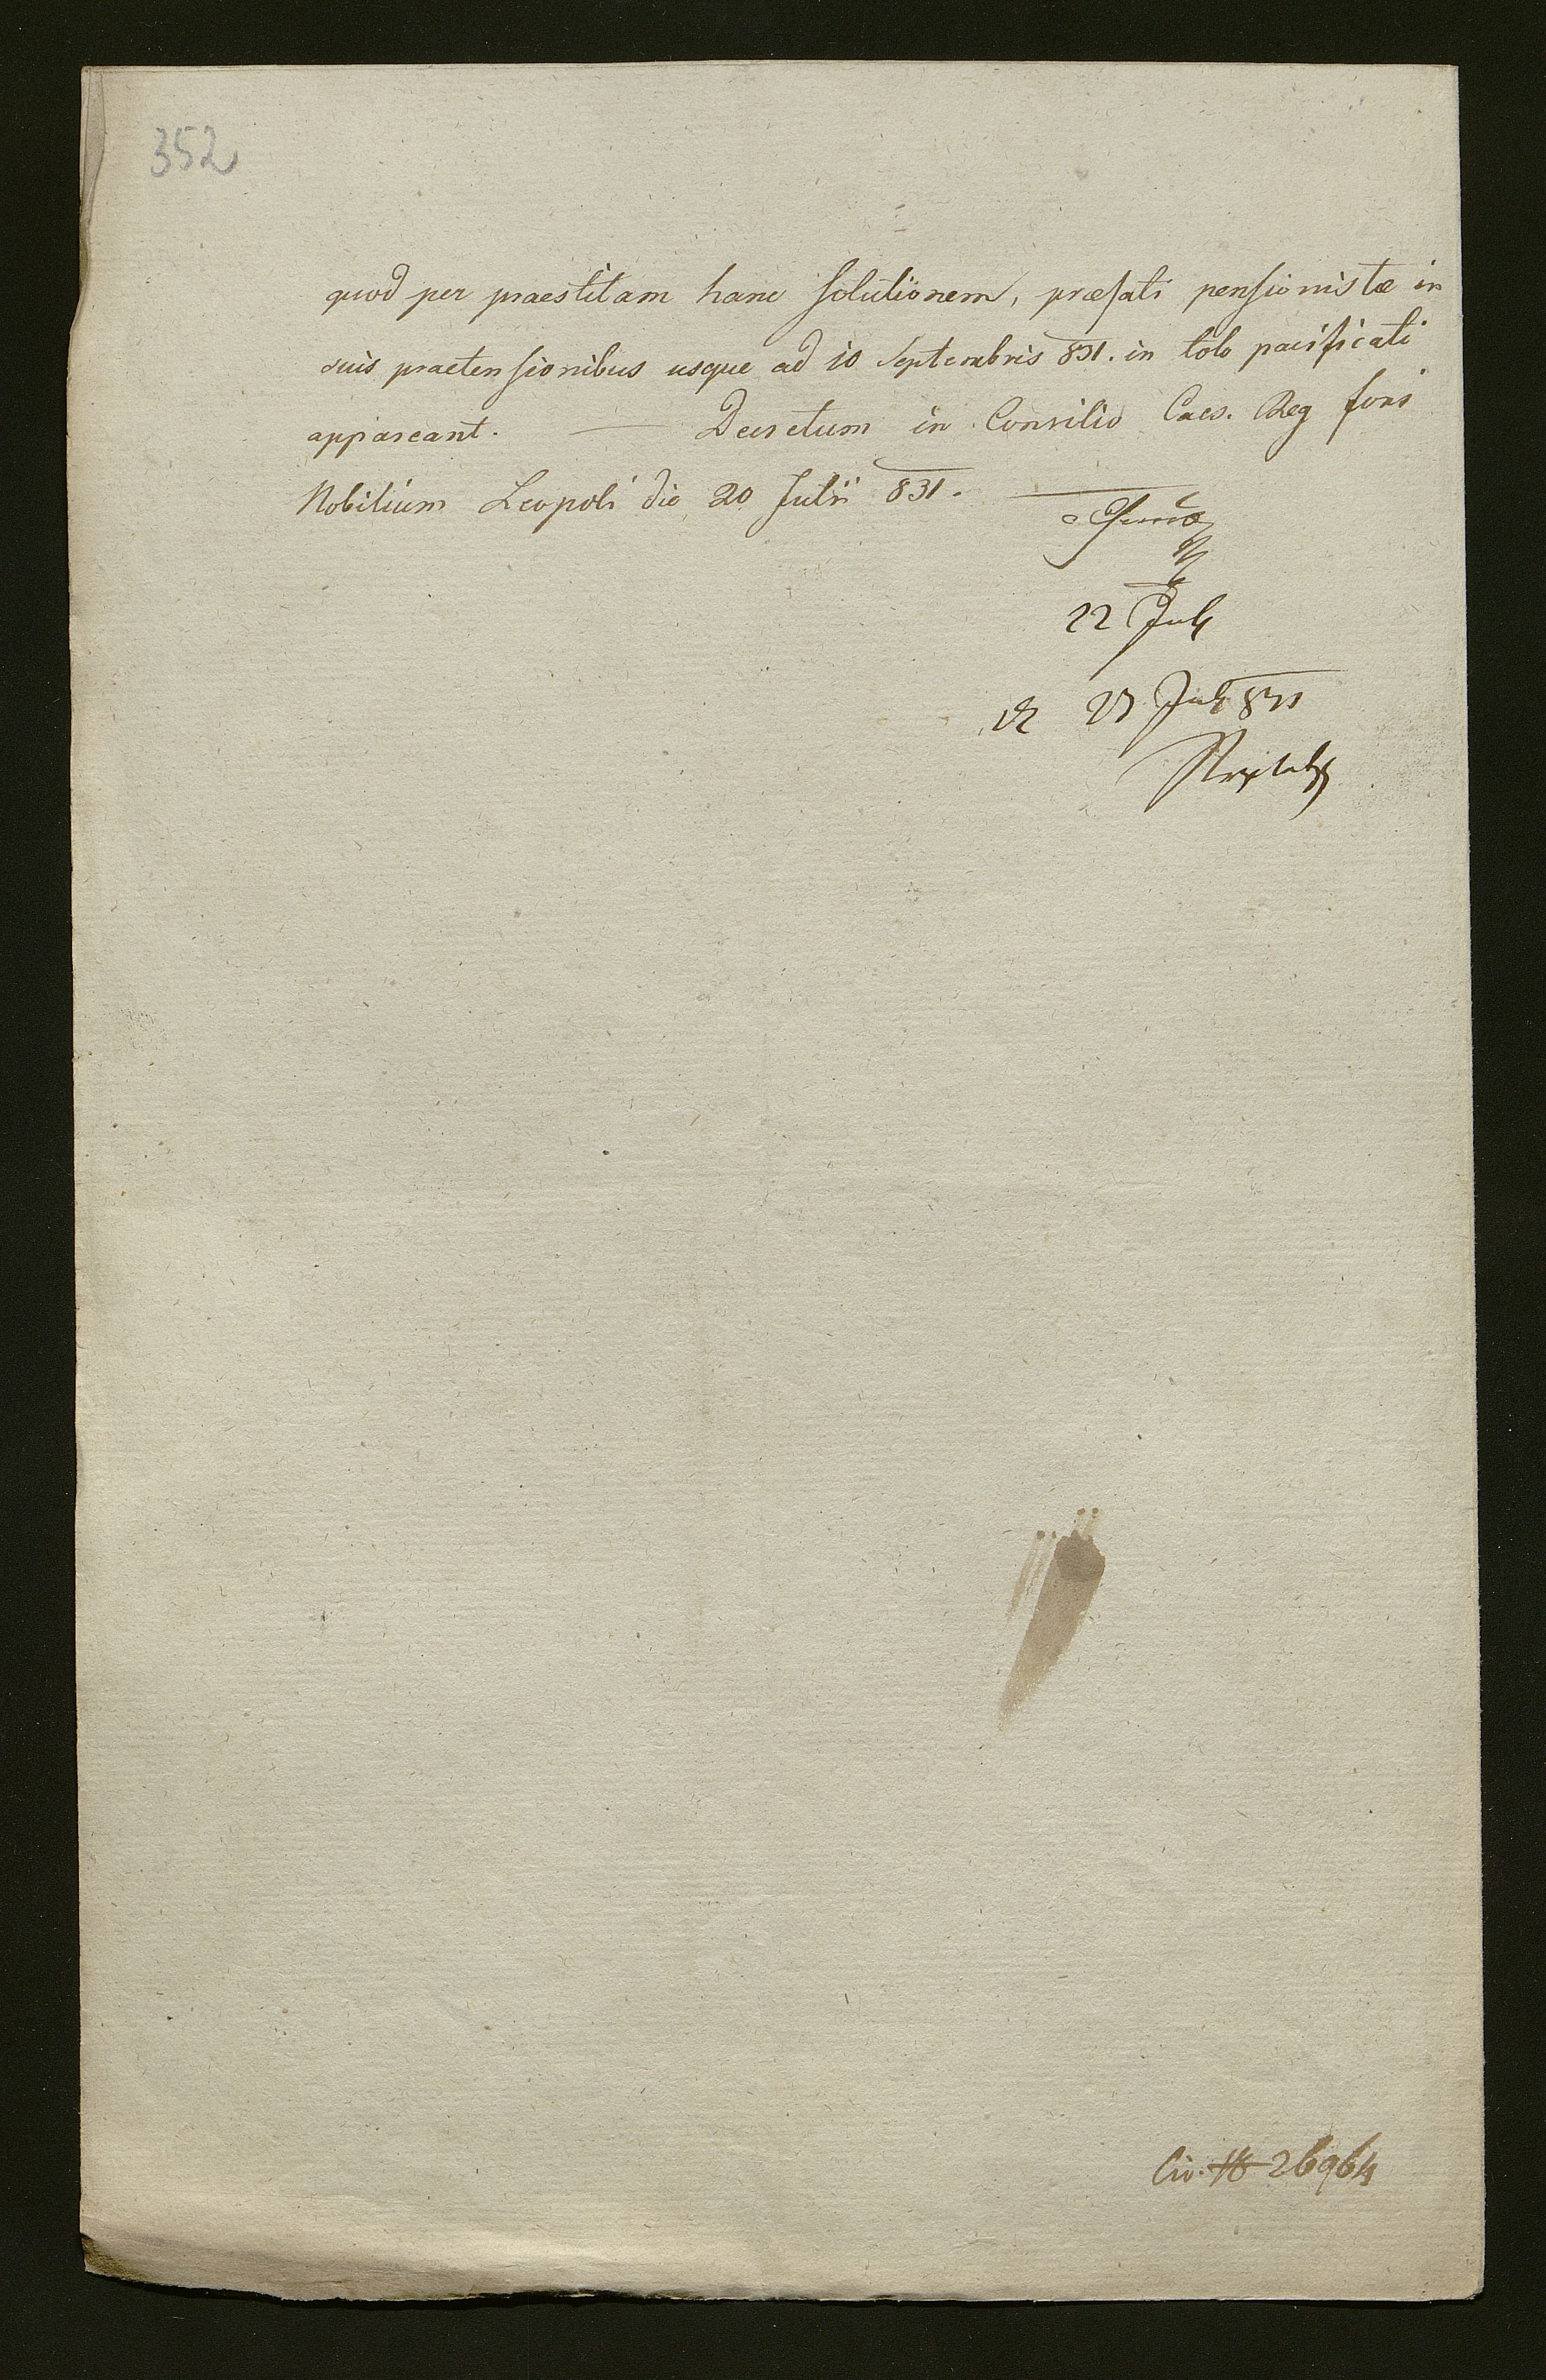 352
quod per praestitam hanc solutionem, præfati pensionistæ in
suis praetensionibus usque ad 10 Septembris 831. in toto pacificati
appareant. — Decretum in Consilio Caes. Reg fori
Nobilium Leopoli die 20 Julii 831.
22 July
27 July 831
Civ. 26964